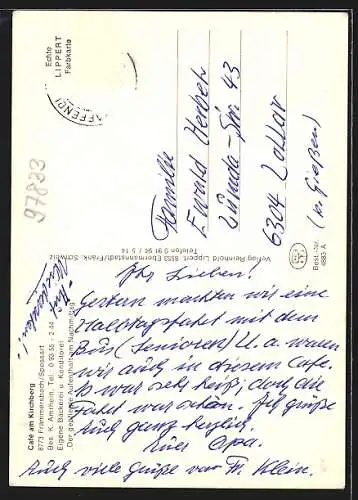 Echte
LIPPERT
Farbkarte
AFFENDI
97833
Familie
Ewald Herber
Lumda-Str. 43
6304 Lollar
(b. Gießen)
Verlag Reinhold Lippert, 8553 Ebermannstadt/Fränk. Schweiz
Telefon 0 91 94 / 5 14
Best.-Nr.
4883 A
Café am Kirchberg
8773 Frammersbach/Spessart
Bes. K. Amrhein, Tel. 0 93 55 - 2 44
Eigene Bäckerei u. Konditorei
„Der gepflegte Aufenthalt am Nachmittag"
Ihr Lieben!
Gestern machten wir eine
Halbtagsfahrt mit dem
Bus (Senioren) U. a. waren
wir auch in diesem Cafe.
Es war sehr heiß, doch die
Fahrt war schön. Ich grüße
Euch ganz herzlich.
Euer Opa.
Auch viele Grüße von Fr. Klein.